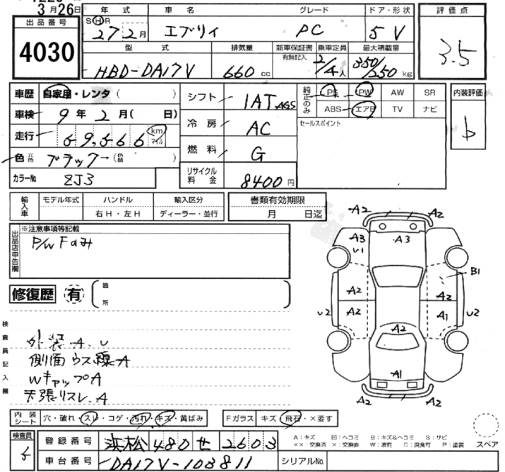 3月26日
出品番号
4030
年式 車名 グレード ドア・形状
S H R 27年2月 エブリィ PC 5 V
型式 排気量 新車保証書 乗車定員 最大積載量
有無記入
HBD-DA17V 660cc 2/4人 350/250kg
評価点
3.5
車歴 自家用・レンタ( )
車検 9年2月( 日)
走行 59,566 km マイル
色 元色 ブラック ( 色替 )
カラーNo ZJ3
シフト IAT AGS
冷房 AC
燃料 G
リサイクル料金 8400円
純正のみ PS PW AW SR
ABS エアB TV ナビ
セールスポイント
内装評価
b
輸入車 モデル年式 ハンドル 輸入区分
右H・左H ディーラー・並行
書類有効期限
月 日迄
出品店申告欄
※注意事項等記載
P/W Fのみ
修復歴 有 箇所
検査員記入欄
外装A.U
側面ウス線A
WキャップA
天張リスレ.A
A2 A2 A2
A3 A3
U1 B1
A2 A2
U2 A2 A1 U2
A2
A1
A2 A2
スペア
内装シート 穴・破れ・スレ・コゲ・汚れ・キズ・黄ばみ
Fガラス キズ・飛石・×要す
A:キズ E:ヘコミ B:キズ&ヘコミ S:サビ
××:交換済 ×:要交換 W:波打 C:腐食 P:要塗装
検査員
登録番号 浜松 480 せ 2603
車台番号 DA17V-103811
シリアルNo.